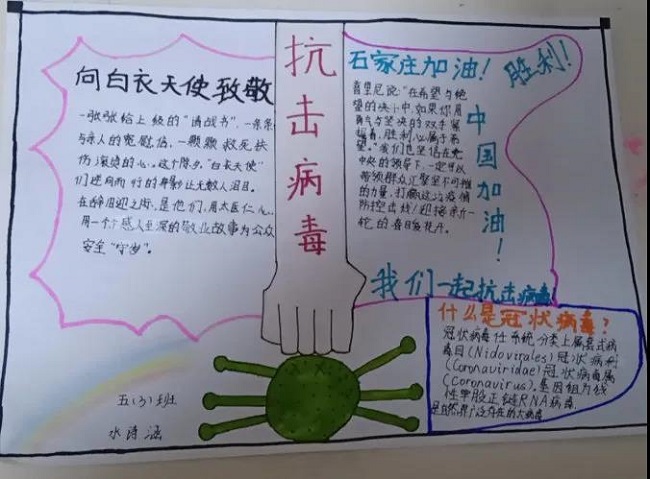 向白衣天使致敬
一张张给上级的"请战书",一条条
与亲人的宽慰信,一颗颗救死扶
伤滚烫的心,这个停步,"白衣天使"
们逆向而行的身影让无数人泪目。
们,用大医仁心,
用一个个感人至深的敬业故事为公众
安全"守岁"。
抗击病毒
石家庄加油!胜利!
说:"在希望与绝
望的决斗中,如果你用
勇气与坚决的双手紧
握着,胜利必属于希
望。"我们也坚信在党
中央的领导下,一定可以
带领群众汇聚坚不可摧
的力量,打赢这次疫情
防控击战!迎接新一
轮的春日繁花开。
中国加油!
我们一起抗击病毒
什么是冠状病毒?
冠状病毒在系统分类上属套式病
毒目(Nidovirales)冠状病毒科
(Coronaviridae)冠状病毒属
(Coronavirus),基因组为线
性单股正链RNA病毒,
是自然界广泛存在的大病毒
五(3)班
水诗涵